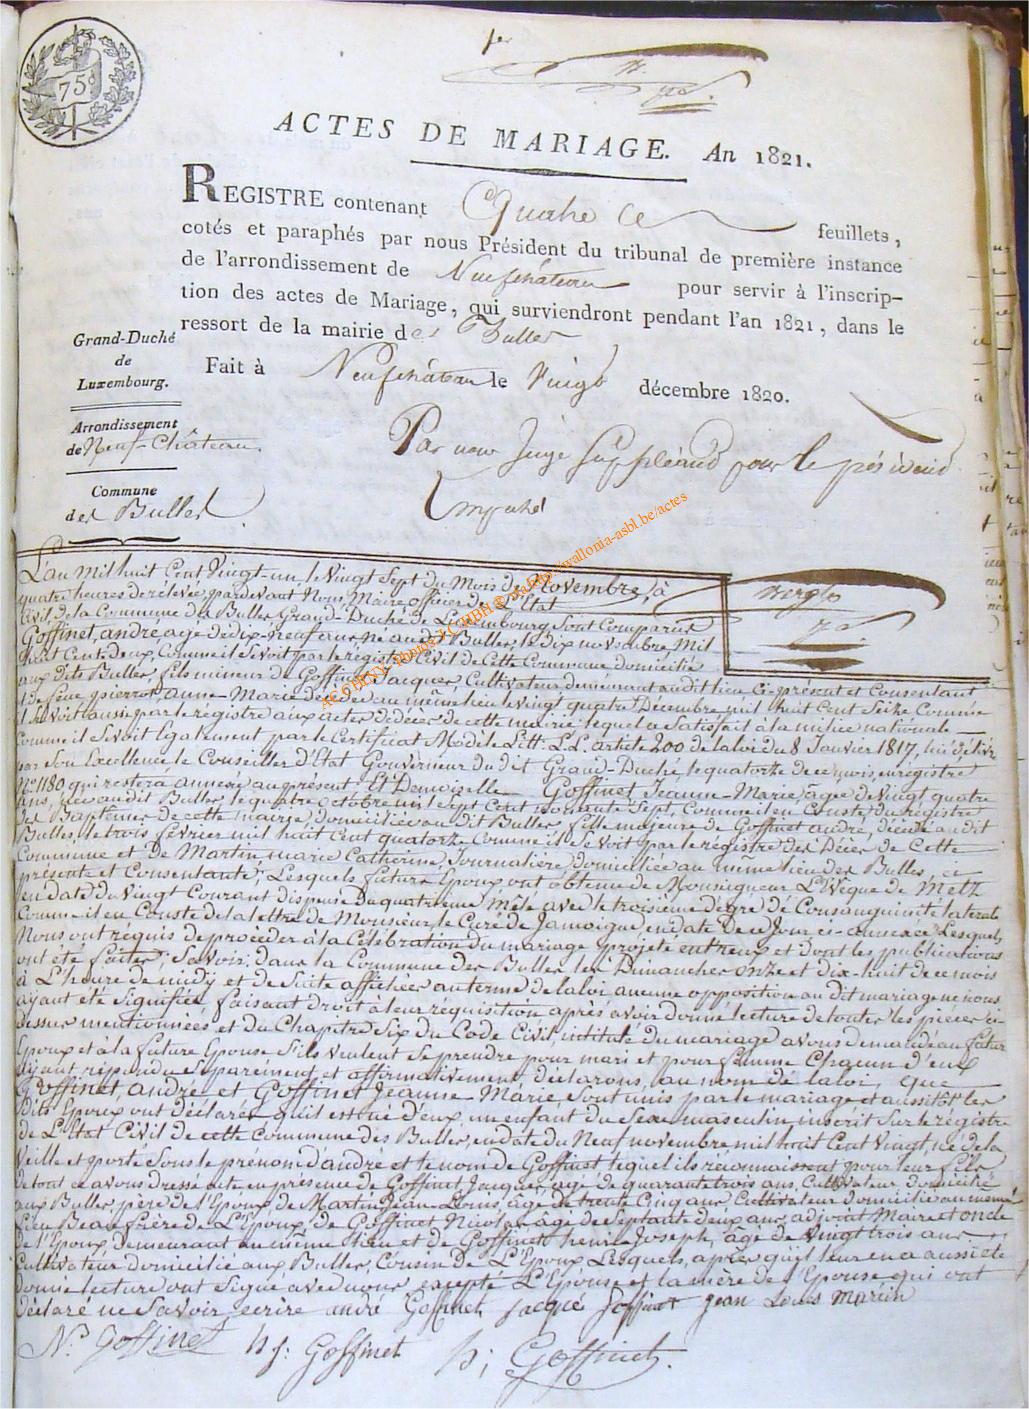 1er
75c
ACTES DE MARIAGE. An 1821.
REGISTRE contenant Quatre feuillets,
cotés et paraphés par nous Président du tribunal de première instance
de l'arrondissement de Neufchâteau pour servir à l'inscrip-
tion des actes de Mariage, qui surviendront pendant l'an 1821, dans le
ressort de la mairie des Bulles
Fait à Neufchâteau le Vingt décembre 1820.
Grand-Duché
de
Luxembourg.
Arrondissement
de Neuf-Château
Commune
des Bulles
Par nous Juge Suppléand pour le présidend
Empeché
L'an Mil huit Cent Vingt-un, le Vingt Sept du Mois de Novembre, à
quatre heures de rélevée, pardevant Nous, Maire officier de L'Etat
Civil de la Commune des Bulles Grand-Duché de Luxembourg, Sont Comparus
Goffinet, andré, agé de dix-neuf ans, né audit Bulles, le dix novembre, Mil
huit Cent deux, Comme il se voit par le régistre Civil de Cette Commune domicilié
aux dits Bulles, fils mineur de Goffinet Jacques, Cultivateur demeurant audit lieu Ci-présent et Consentant
et de feue pierrot, anne-Marie décédée au même lieu le vingt quatre Décembre mil huit Cent Seize Comme
il se voit aussi par le régistre aux actes de décès de cette mairie, lequel a Satisfait à la milice nationale
Comme il se voit légalement par le Certificat Modèle Litt: L.L. article 200 de la loi du 8 Janvier 1817, lui délivré
par Son Excellence le Conseiller d'Etat Gouverneur du dit Grand-Duché, le quatorze de ce mois, enregistré
N° 1180 qui restera annexé au présent, Et Demoiselle Goffinet Jeanne-Marie, agée de Vingt quatre
ans, née audit Bulles, le quatre octobre mil sept Cent nonante Sept, Comme il en Conste du régistre
des Baptêmes de cette mairie, domiciliée au dit Bulles, fille majeure de Goffinet andré, décédé audit
Bulles, le trois février mil huit Cent quatorze Comme il se voit par le régistre des Décès de Cette
Commune et de Martin, marie Catherine, Journalière domiciliée au même lieu des Bulles, ci
présente et Consentante, Lesquels futurs Epoux ont obtenu de Monseigneur L'Evêque de Metz
en date du vingt Courant dispense du quatrième mêlé avec le troisième dégré de Consanguinité latérale
Comme il en Conste de la lettre de Monsieur le Curé de Jamoigne, en date de ce Jour ci-annexée Lesquels
Nous ont réquis de procéder à la Célébration du mariage projeté entreux et dont les publications
ont été faites, Savoir: dans la Commune des Bulles les Dimanches onze et dix-huit de ce mois
à L'heure de midy et de Suite affichées au terme de la loi, aucune opposition au dit mariage ne nous
ayant été Signifiée, faisant droit à leur réquisition, après avoir donné lecture de toutes les pièces ci-
dessus mentionnées et du Chapitre Six du Code Civil, intitulé du mariage avons demandé au futur
Epoux et à la future Epouse S'ils veulent Se prendre pour mari et pour femme Chacun d'eux
ayant répondu Séparement et affirmativement, déclarons, au nom de la loi, que
Goffinet, andré et Goffinet Jeanne Marie, Sont unis par le mariage et aussitôt les
dits Epoux ont déclaré qu'il est né d'eux, un enfant du Sexe masculin, inscrit Sur le régistre
de L'Etat Civil de cette Commune des Bulles, en date du Neuf novembre mil huit Cent Vingt, né de la
Veille et porté Sous le prénom d'andré et le nom de Goffinet, lequel ils réconnaissent pour leur fils
de tout ce avons dressé acte en présence de Goffinet Jacques, agé de quarante trois ans, Cultivateur domicilié
aux Bulles, père de l'Epoux, de Martin Jean-Louis, agé de trente Cinq ans, Cultivateur domicilié au même
lieu Beau frère de L'Epoux, de Goffinet Nicolas agé de Septante deux ans, adjoint Maire et oncle
de l'Epoux demeurant au même lieu et de Goffinet henri Joseph, agé de Vingt trois ans
Cultivateur domicilié aux Bulles, Cousin de L'Epoux, Lesquels, après qu'il leur en a aussi été
donné lecture ont Signé avec nous, excepté L'Epouse et la mère de l'Epouse qui ont
déclaré ne Savoir écrire andré Goffinet jacque Goffinet jean Louis Martin
N: Goffinet h j: Goffinet h; Goffinet.